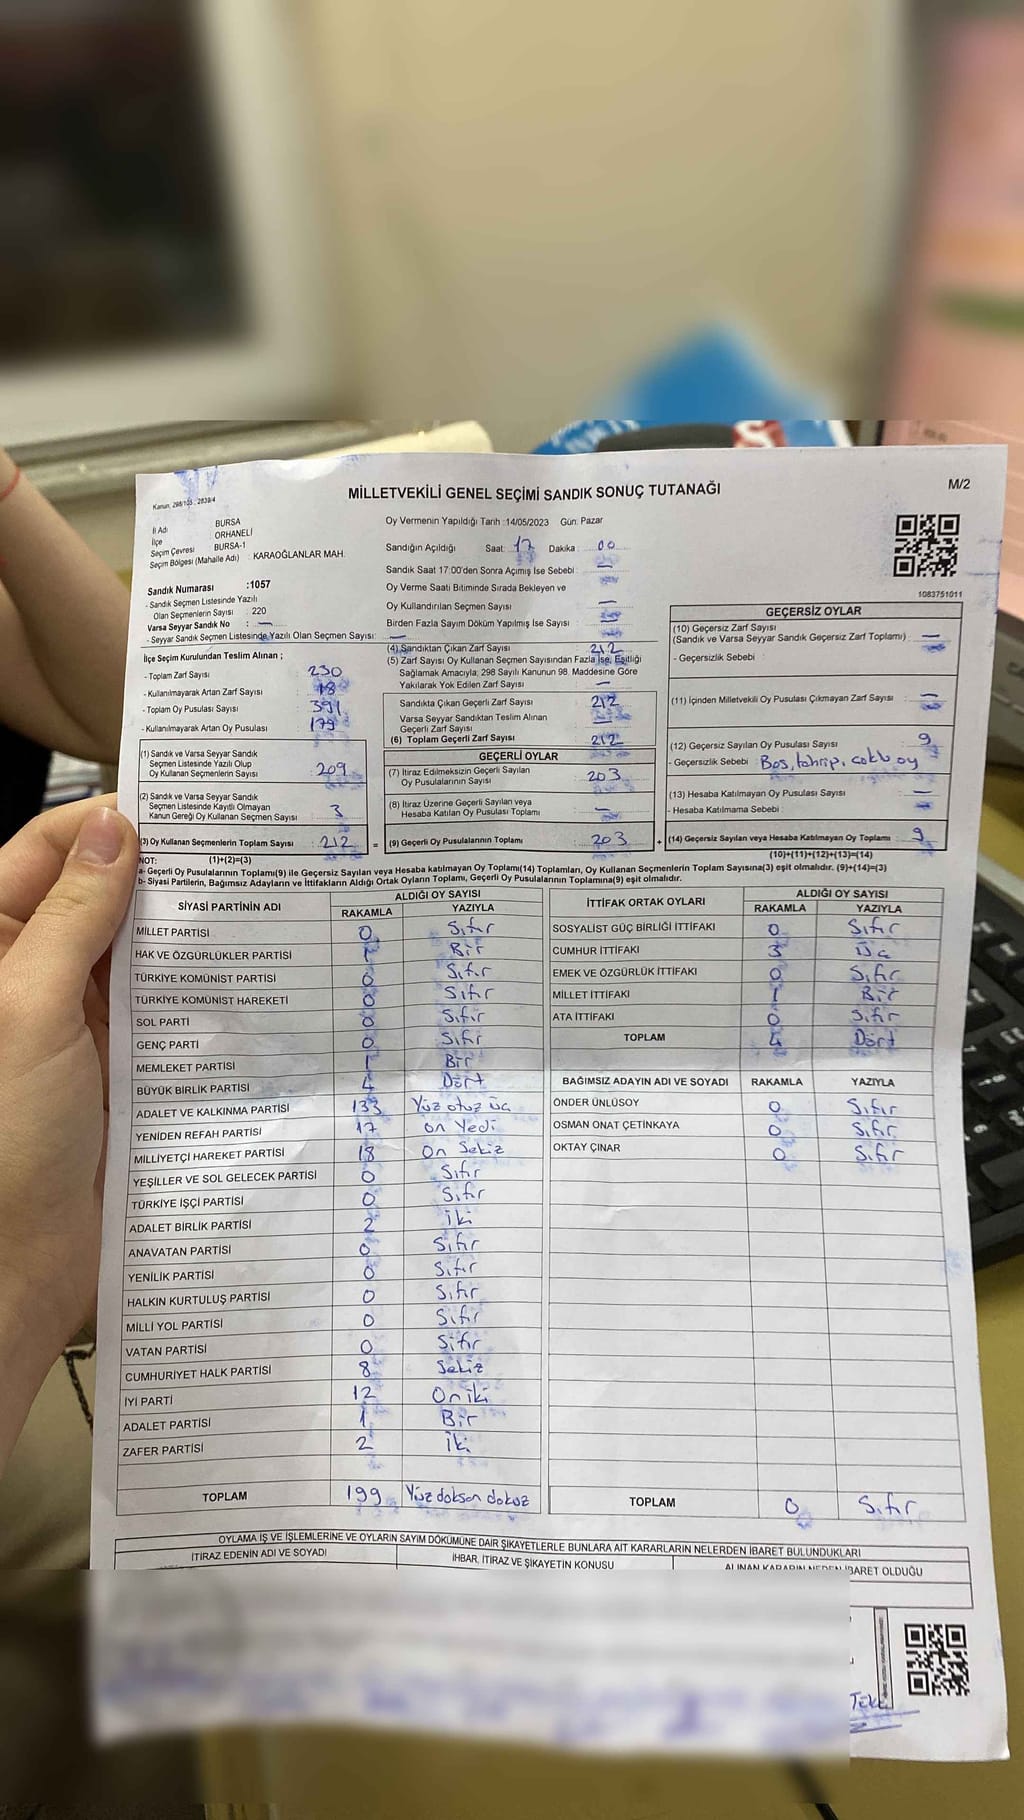 MİLLETVEKİLİ GENEL SEÇİMİ SANDIK SONUÇ TUTANAĞI
M/2
İl Adı BURSA
İlçe ORHANELİ
Seçim Çevresi BURSA-1
Seçim Bölgesi (Mahalle Adı) : KARAOĞLANLAR MAH.
Sandık Numarası :1057
- Sandık Seçmen Listesinde Yazılı
Olan Seçmenlerin Sayısı : 220
Varsa Seyyar Sandık No : —
- Seyyar Sandık Seçmen Listesinde Yazılı Olan Seçmen Sayısı: —
İlçe Seçim Kurulundan Teslim Alınan ;
- Toplam Zarf Sayısı : 230
- Kullanılmayarak Artan Zarf Sayısı : 18
- Toplam Oy Pusulası Sayısı : 391
- Kullanılmayarak Artan Oy Pusulası : 179
(1) Sandık ve Varsa Seyyar Sandık
Seçmen Listesinde Yazılı Olup
Oy Kullanan Seçmenlerin Sayısı : 209
(2) Sandık ve Varsa Seyyar Sandık
Seçmen Listesinde Kayıtlı Olmayan
Kanun Gereği Oy Kullanan Seçmen Sayısı : 3
(3) Oy Kullanan Seçmenlerin Toplam Sayısı : 212 =
Oy Vermenin Yapıldığı Tarih :14/05/2023 Gün: Pazar
Sandığın Açıldığı Saat: 17 Dakika : 00
Sandık Saat 17:00'den Sonra Açımış İse Sebebi : —
Oy Verme Saati Bitiminde Sırada Bekleyen ve
Oy Kullandırılan Seçmen Sayısı : —
Birden Fazla Sayım Döküm Yapılmış İse Sayısı : —
(4) Sandıktan Çıkan Zarf Sayısı : 212
(5) Zarf Sayısı Oy Kullanan Seçmen Sayısından Fazla İse, Eşitliği
Sağlamak Amacıyla, 298 Sayılı Kanunun 98. Maddesine Göre
Yakılarak Yok Edilen Zarf Sayısı : —
Sandıkta Çıkan Geçerli Zarf Sayısı : 212
Varsa Seyyar Sandıktan Teslim Alınan
Geçerli Zarf Sayısı : —
(6) Toplam Geçerli Zarf Sayısı : 212
GEÇERLİ OYLAR
(7) İtiraz Edilmeksizin Geçerli Sayılan
Oy Pusulalarının Sayısı : 203
(8) İtiraz Üzerine Geçerli Sayılan veya
Hesaba Katılan Oy Pusulası Toplamı : —
(9) Geçerli Oy Pusulalarının Toplamı : 203 +
1083751011
GEÇERSİZ OYLAR
(10) Geçersiz Zarf Sayısı
(Sandık ve Varsa Seyyar Sandık Geçersiz Zarf Toplamı) : —
- Geçersizlik Sebebi :
(11) İçinden Milletvekili Oy Pusulası Çıkmayan Zarf Sayısı : —
(12) Geçersiz Sayılan Oy Pusulası Sayısı : 9
- Geçersizlik Sebebi : Boş, tahrip, çoklu oy
(13) Hesaba Katılmayan Oy Pusulası Sayısı : —
- Hesaba Katılmama Sebebi : —
(14) Geçersiz Sayılan veya Hesaba Katılmayan Oy Toplamı : 9
NOT: (1)+(2)=(3) (10)+(11)+(12)+(13)=(14)
a- Geçerli Oy Pusulalarının Toplamı(9) ile Geçersiz Sayılan veya Hesaba katılmayan Oy Toplamı(14) Toplamları, Oy Kullanan Seçmenlerin Toplam Sayısına(3) eşit olmalıdır. (9)+(14)=(3)
b- Siyasi Partilerin, Bağımsız Adayların ve İttifakların Aldığı Ortak Oyların Toplamı, Geçerli Oy Pusulalarının Toplamına(9) eşit olmalıdır.
SİYASİ PARTİNİN ADI ALDIĞI OY SAYISI
RAKAMLA YAZIYLA
MİLLET PARTİSİ 0 Sıfır
HAK VE ÖZGÜRLÜKLER PARTİSİ 1 Bir
TÜRKİYE KOMÜNİST PARTİSİ 0 Sıfır
TÜRKİYE KOMÜNİST HAREKETİ 0 Sıfır
SOL PARTİ 0 Sıfır
GENÇ PARTİ 0 Sıfır
MEMLEKET PARTİSİ 1 Bir
BÜYÜK BİRLİK PARTİSİ 4 Dört
ADALET VE KALKINMA PARTİSİ 133 Yüz otuz üç
YENİDEN REFAH PARTİSİ 17 on Yedi
MİLLİYETÇİ HAREKET PARTİSİ 18 On Sekiz
YEŞİLLER VE SOL GELECEK PARTİSİ 0 Sıfır
TÜRKİYE İŞÇİ PARTİSİ 0 Sıfır
ADALET BİRLİK PARTİSİ 2 iki
ANAVATAN PARTİSİ 0 Sıfır
YENİLİK PARTİSİ 0 Sıfır
HALKIN KURTULUŞ PARTİSİ 0 Sıfır
MİLLİ YOL PARTİSİ 0 Sıfır
VATAN PARTİSİ 0 Sıfır
CUMHURİYET HALK PARTİSİ 8 Sekiz
İYİ PARTİ 12 On iki
ADALET PARTİSİ 1 Bir
ZAFER PARTİSİ 2 İki
TOPLAM 199 Yüz doksan dokuz
İTTİFAK ORTAK OYLARI ALDIĞI OY SAYISI
RAKAMLA YAZIYLA
SOSYALİST GÜÇ BİRLİĞİ İTTİFAKI 0 Sıfır
CUMHUR İTTİFAKI 3 Üç
EMEK VE ÖZGÜRLÜK İTTİFAKI 0 Sıfır
MİLLET İTTİFAKI 1 Bir
ATA İTTİFAKI 0 Sıfır
TOPLAM 4 Dört
BAĞIMSIZ ADAYIN ADI VE SOYADI RAKAMLA YAZIYLA
ÖNDER ÜNLÜSOY 0 Sıfır
OSMAN ONAT ÇETİNKAYA 0 Sıfır
OKTAY ÇINAR 0 Sıfır
TOPLAM 0 Sıfır
OYLAMA İŞ VE İŞLEMLERİNE VE OYLARIN SAYIM DÖKÜMÜNE DAİR ŞİKAYETLERLE BUNLARA AİT KARARLARIN NELERDEN İBARET BULUNDUKLARI
İTİRAZ EDENİN ADI VE SOYADI İHBAR, İTİRAZ VE ŞİKAYETİN KONUSU ALINAN KARARIN NEDEN İBARET OLDUĞU